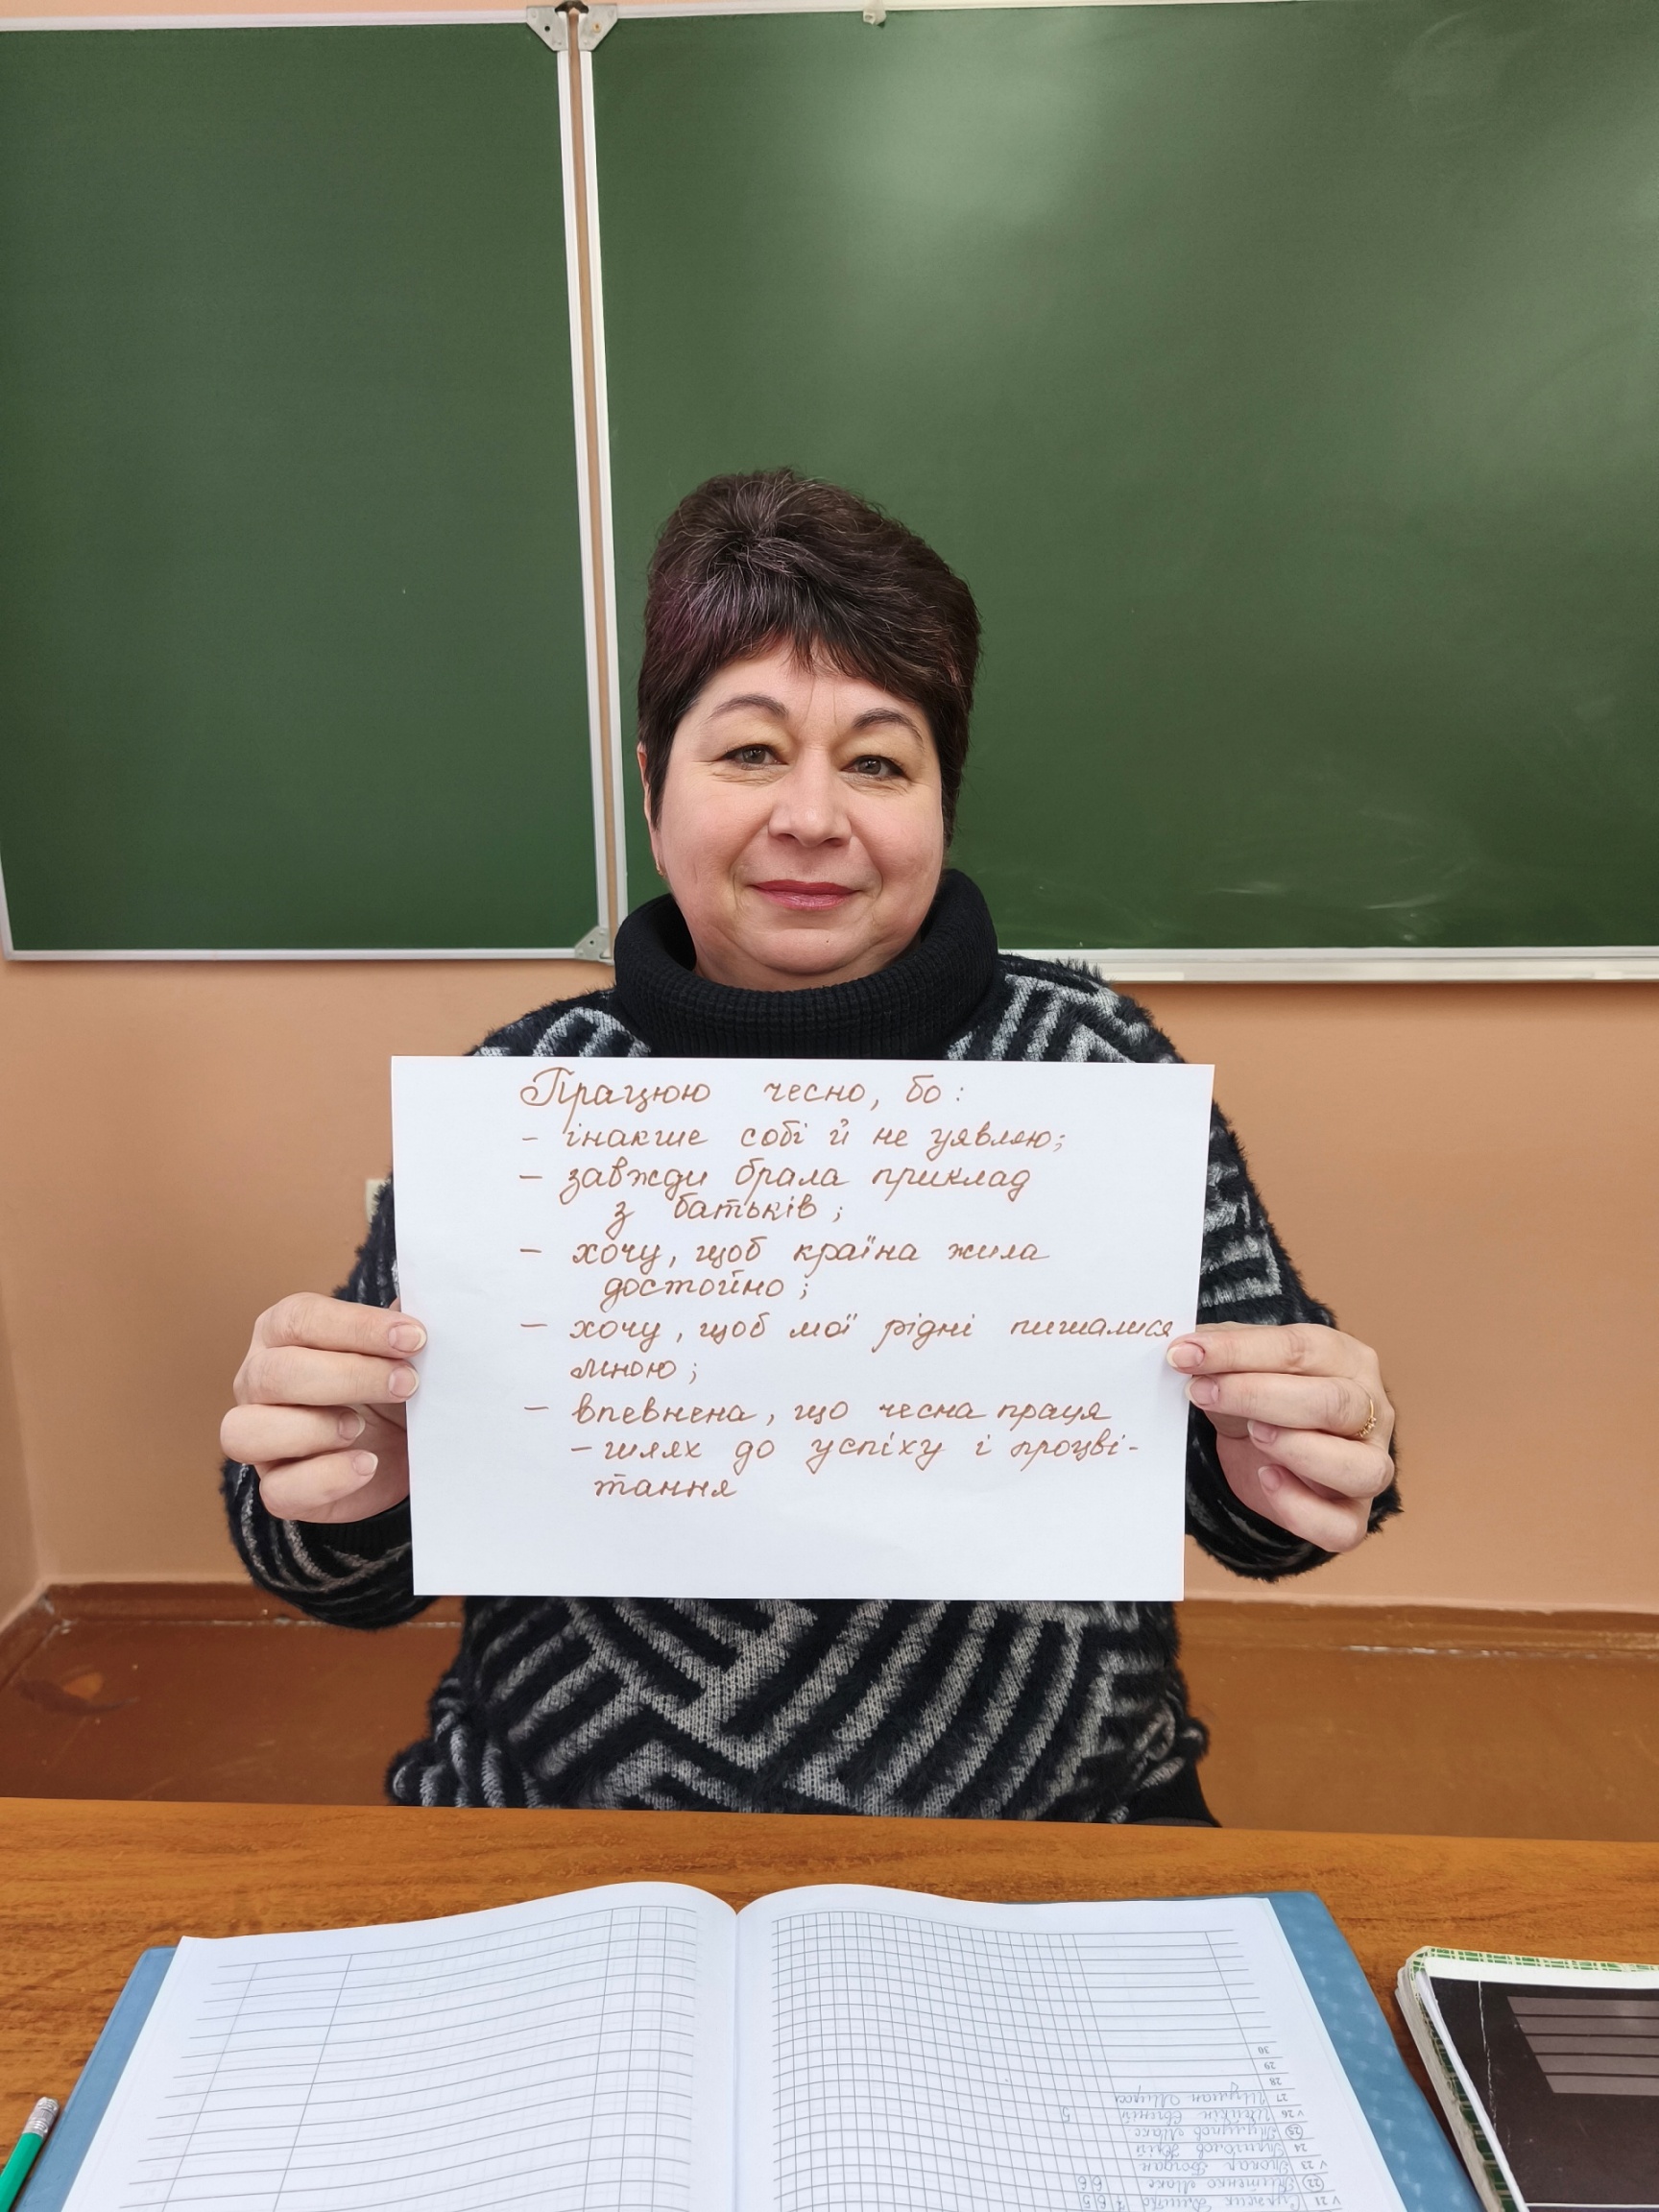 Працюю чесно, бо:
- інакше собі й не уявляю;
- завжди брала приклад
з батьків;
- хочу, щоб країна жила
достойно;
- хочу, щоб мої рідні пишалися
мною;
- впевнена, що чесна праця
- шлях до успіху і процві-
тання
30
29
28
27
v 26 5
25
24
v 23 Богдан
22 66
v 21 765